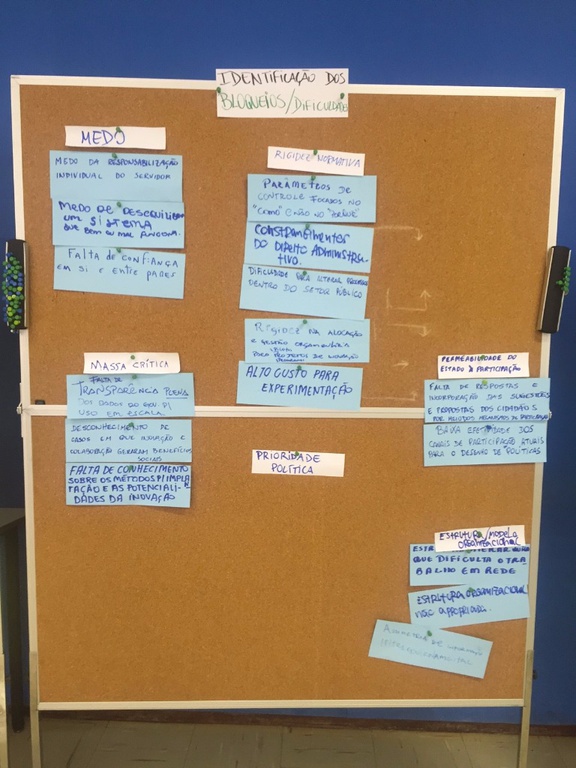 IDENTIFICAÇÃO DOS
BLOQUEIOS/DIFICULDADES
MEDO
MEDO DA RESPONSABILIZAÇÃO
INDIVIDUAL DO SERVIDOR
MEDO DE DESEQUILIBRAR
UM SISTEMA
QUE BEM OU MAL FUNCIONA
FALTA DE CONFIANÇA
EM SI E ENTRE PARES
RIGIDEZ NORMATIVA
PARÂMETROS DE
CONTROLE FOCADOS NO
"COMO" E NÃO NO
CONSTRANGIMENTOS
DO DIREITO ADMINISTRA-
TIVO.
DIFICULDADE PARA ITERAR
DENTRO DO SETOR PÚBLICO
RIGIDEZ NA ALOCAÇÃO
E GESTÃO ORÇAMENTÁRIA
PARA PROJETOS DE INOVAÇÃO
ALTO CUSTO PARA
EXPERIMENTAÇÃO
MASSA CRÍTICA
FALTA DE
TRANSPARÊNCIA PLENA
DOS DADOS DO GOV. P/
USO EM ESCALA.
DESCONHECIMENTO DE
CASOS EM QUE INOVAÇÃO E
COLABORAÇÃO GERARAM BENEFÍCIOS
SOCIAIS
FALTA DE CONHECIMENTO
SOBRE OS MÉTODOS P/ IMPLA
TAÇÃO E AS POTENCIALI-
DADES DA INOVAÇÃO
PRIORIDADE
POLÍTICA
PERMEABILIDADE DO
ESTADO À PARTICIPAÇÃO
FALTA DE RESPOSTAS E
INCORPORAÇÃO DAS SUGESTÕES
E PROPOSTAS DOS CIDADÃOS
POR MEIO DOS MECANISMOS DE PARTICIPAÇÃO
BAIXA EFETIVIDADE DOS
CANAIS DE PARTICIPAÇÃO ATUAIS
PARA O DESENHO DE POLÍTICAS
ESTRUTURA/MODELO
ORGANIZACIONAL
QUE DIFICULTA O TRA
BALHO EM REDE
ESTRUTURA ORGANIZACIONAL
NÃO APROPRIADA.
ASSIMETRIA DE INFORMAÇÃO